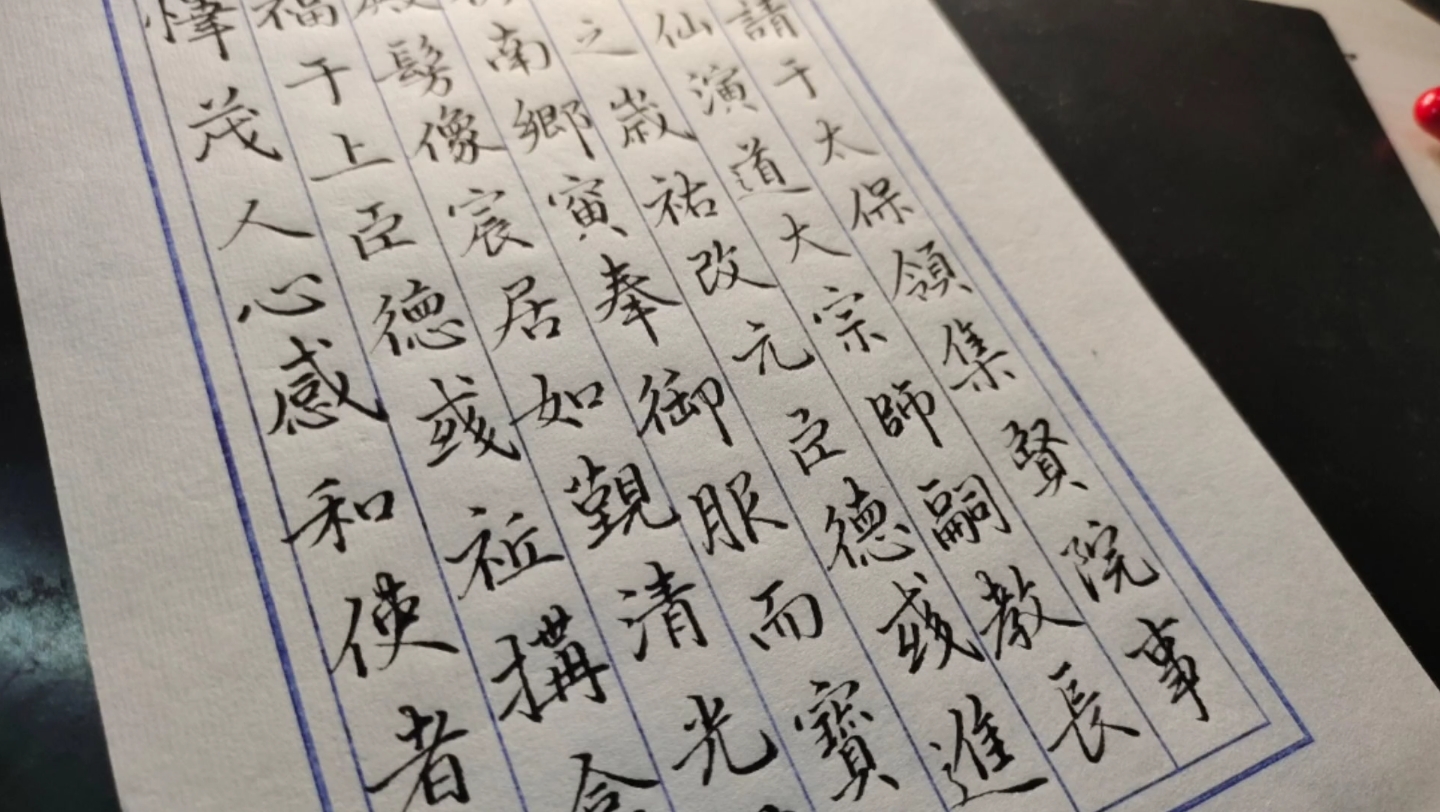 請于太保領集賢院事
仙演道大宗師嗣教長
之歲祐改元臣德彧進
南鄉寅奉御服而寶
髣像宸居如覲清光
福于上臣德彧祗搆
茂人心感和使者